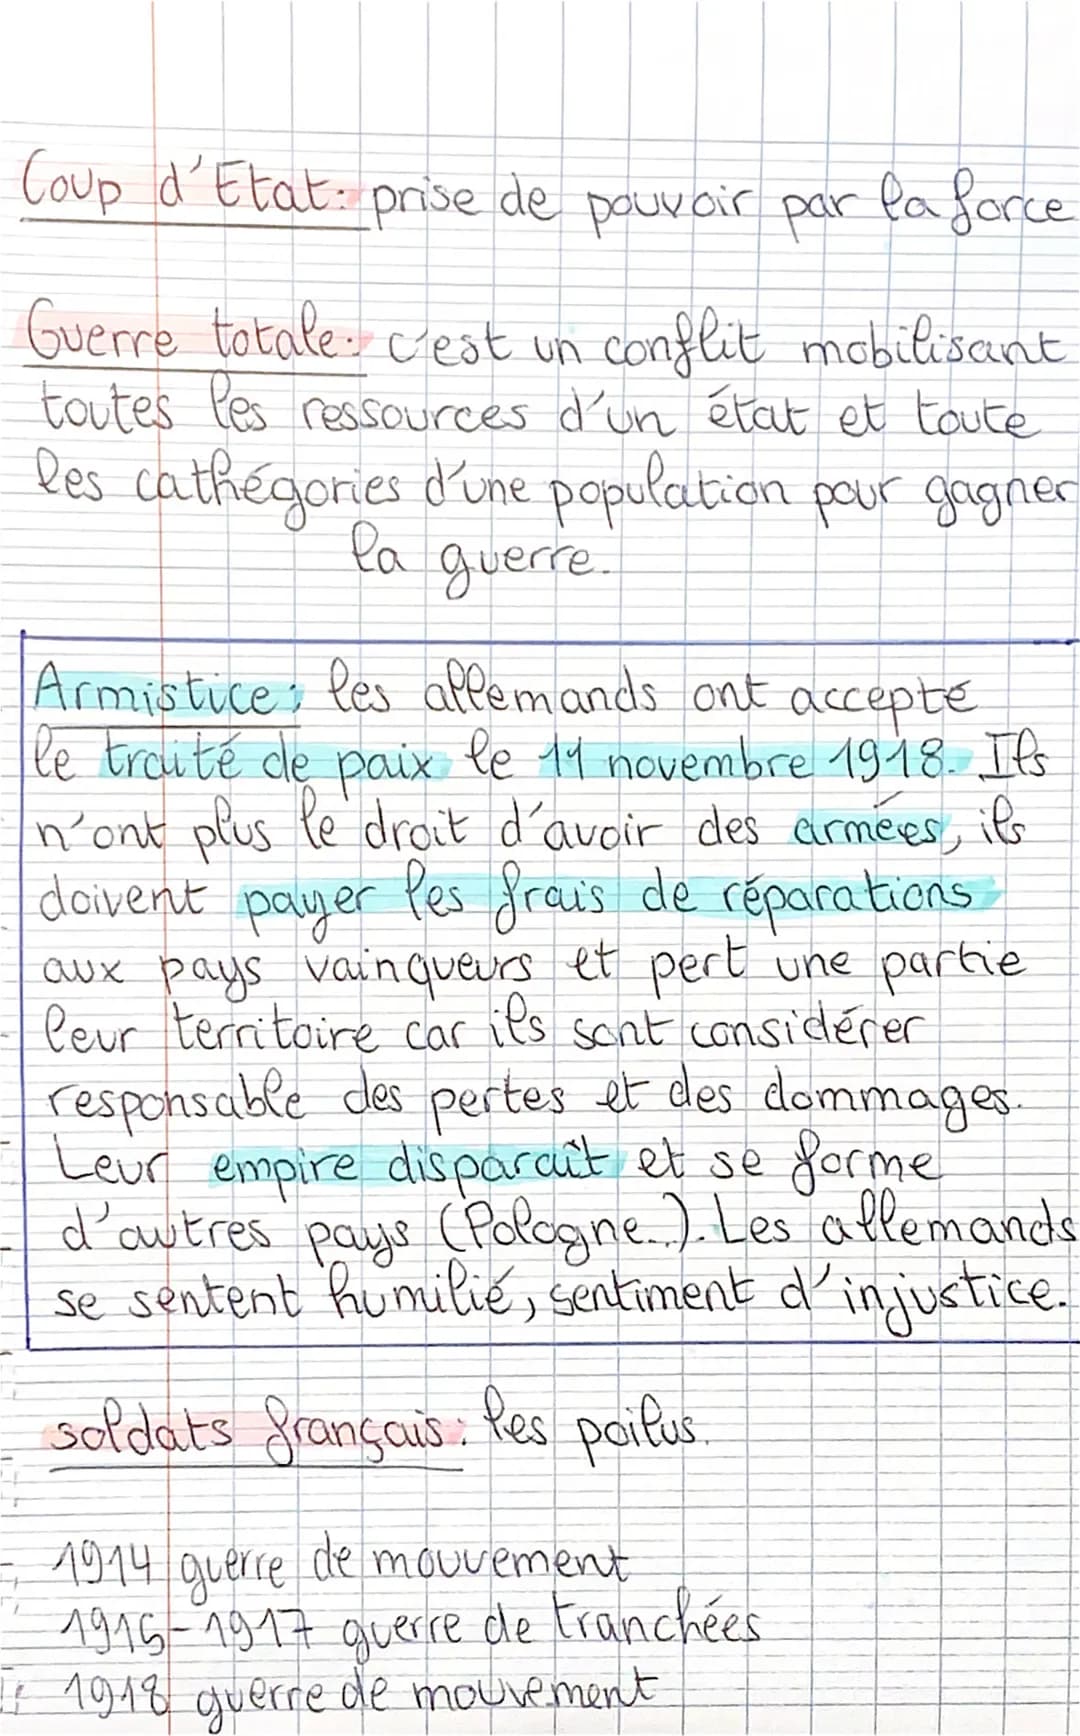 Coup d'Etat: prise de pouvoir par la force
Guerre totale: c'est un conflit mobilisant
toutes les ressources d'un état et toute
les cathégories d'une population pour gagner
la guerre.
Armistice: les allemands ont accepté
le traité de paix le 11 novembre 1918. Ils
n'ont plus le droit d'avoir des armées, ils
doivent payer les frais de réparations
aux pays vainqueurs et pert une partie
leur territoire car ils sont considérer
responsable des pertes et des dommages.
Leur empire disparaît et se forme
d'autres pays (Pologne..). Les allemands
se sentent humilié, sentiment d'injustice.
soldats français: les poilus.
1914 guerre de mouvement
1915-1917 guerre de tranchées
1918 guerre de mouvement